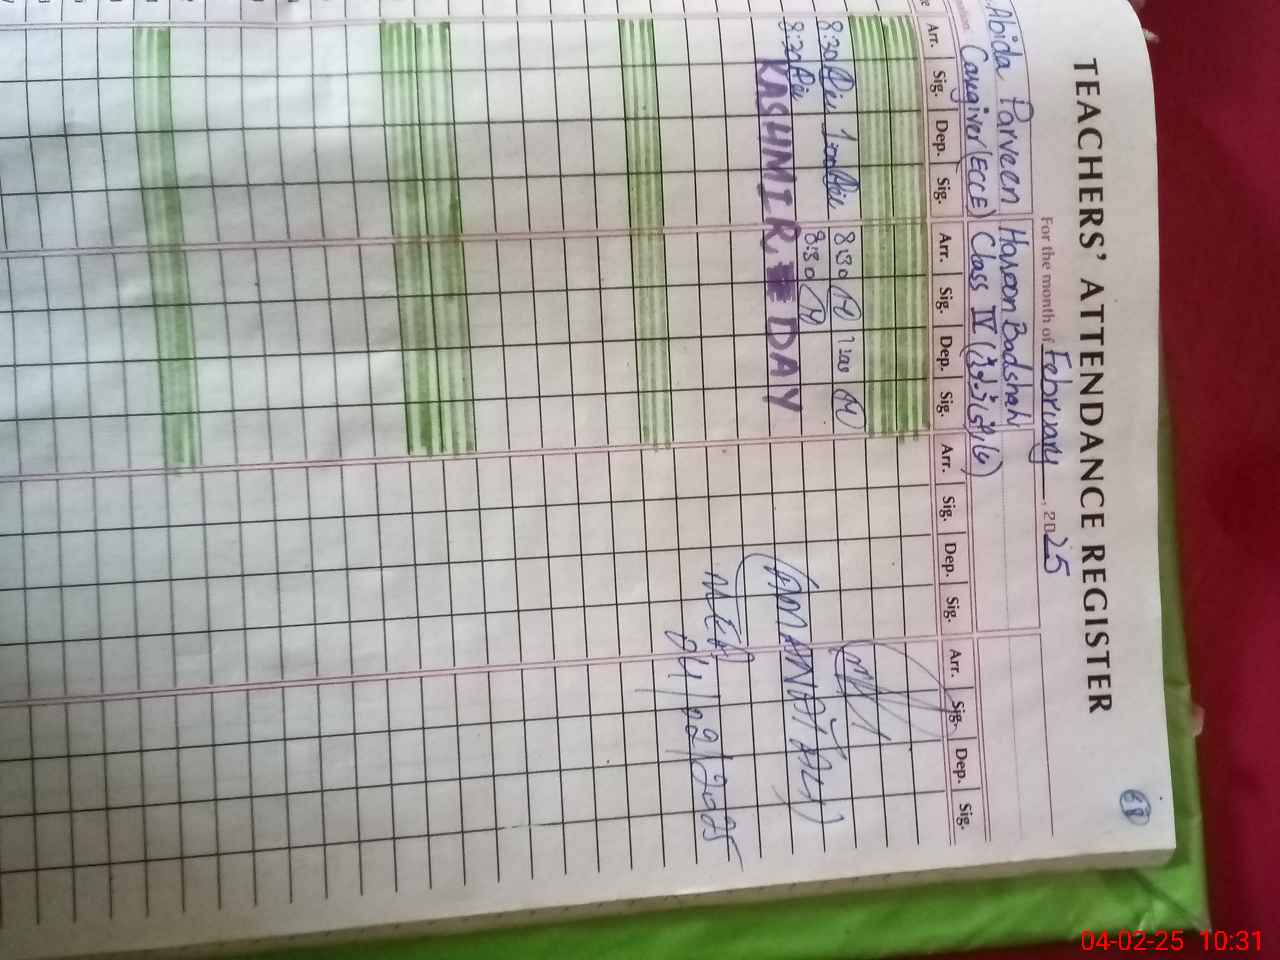 68
TEACHERS' ATTENDANCE REGISTER
For the month of Februray, 2025
Abida Parveen Haroon Badshah
Caregiver (ECCE) Class IV
Arr. Sig. Dep. Sig. Arr. Sig. Dep. Sig. Arr. Sig. Dep. Sig. Arr. Sig. Dep. Sig.
8:30 1:00 8:30 1:00
8:30 8:30
KASHMIR DAY
(AMANAT ALI)
MEA
04/02/2025
04-02-25 10:31